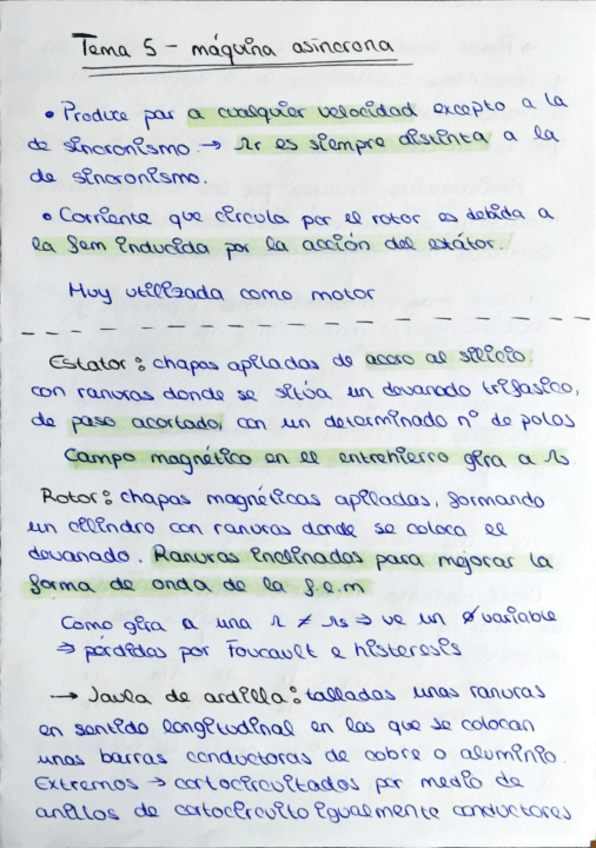 Tema 5 - máquina asíncrona
• Produce par a cualquier velocidad excepto a la
de sincronismo. → Ωr es siempre distinta a la
de sincronismo.
• Corriente que circula por el rotor es debida a
la fem inducida por la acción del estátor.
Muy utilizada como motor
Estator: chapas apiladas de acero al silicio.
con ranuras donde se sitúa un devanado trifásico,
de paso acortado, con un determinado nº de polos
Campo magnético en el entrehierro gira a Ωs.
Rotor: chapas magnéticas apiladas, formando
un cilindro con ranuras donde se coloca el
devanado. Ranuras inclinadas para mejorar la
forma de onda de la f.e.m
Como gira a una Ω ≠ Ωs ⇒ ve un ø variable
⇒ pérdidas por Foucault e histeresis
→ Jaula de ardilla: talladas unas ranuras
en sentido longitudinal en las que se colocan
unas barras conductoras de cobre o aluminio.
Extremos → cortocircuitados por medio de
anillos de cortocircuito igualmente conductores